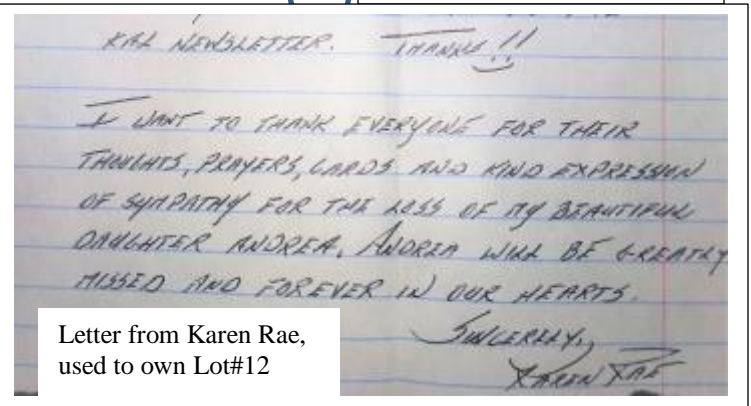 KAL NEWSLETTER. THANKS!!
I WANT TO THANK EVERYONE FOR THEIR
THOUGHTS, PRAYERS, CARDS AND KIND EXPRESSION
OF SYMPATHY FOR THE LOSS OF MY BEAUTIFUL
DAUGHTER ANDREA. ANDREA WILL BE GREATLY
MISSED AND FOREVER IN OUR HEARTS.
SINCERELY,
KAREN RAE
Letter from Karen Rae,
used to own Lot#12